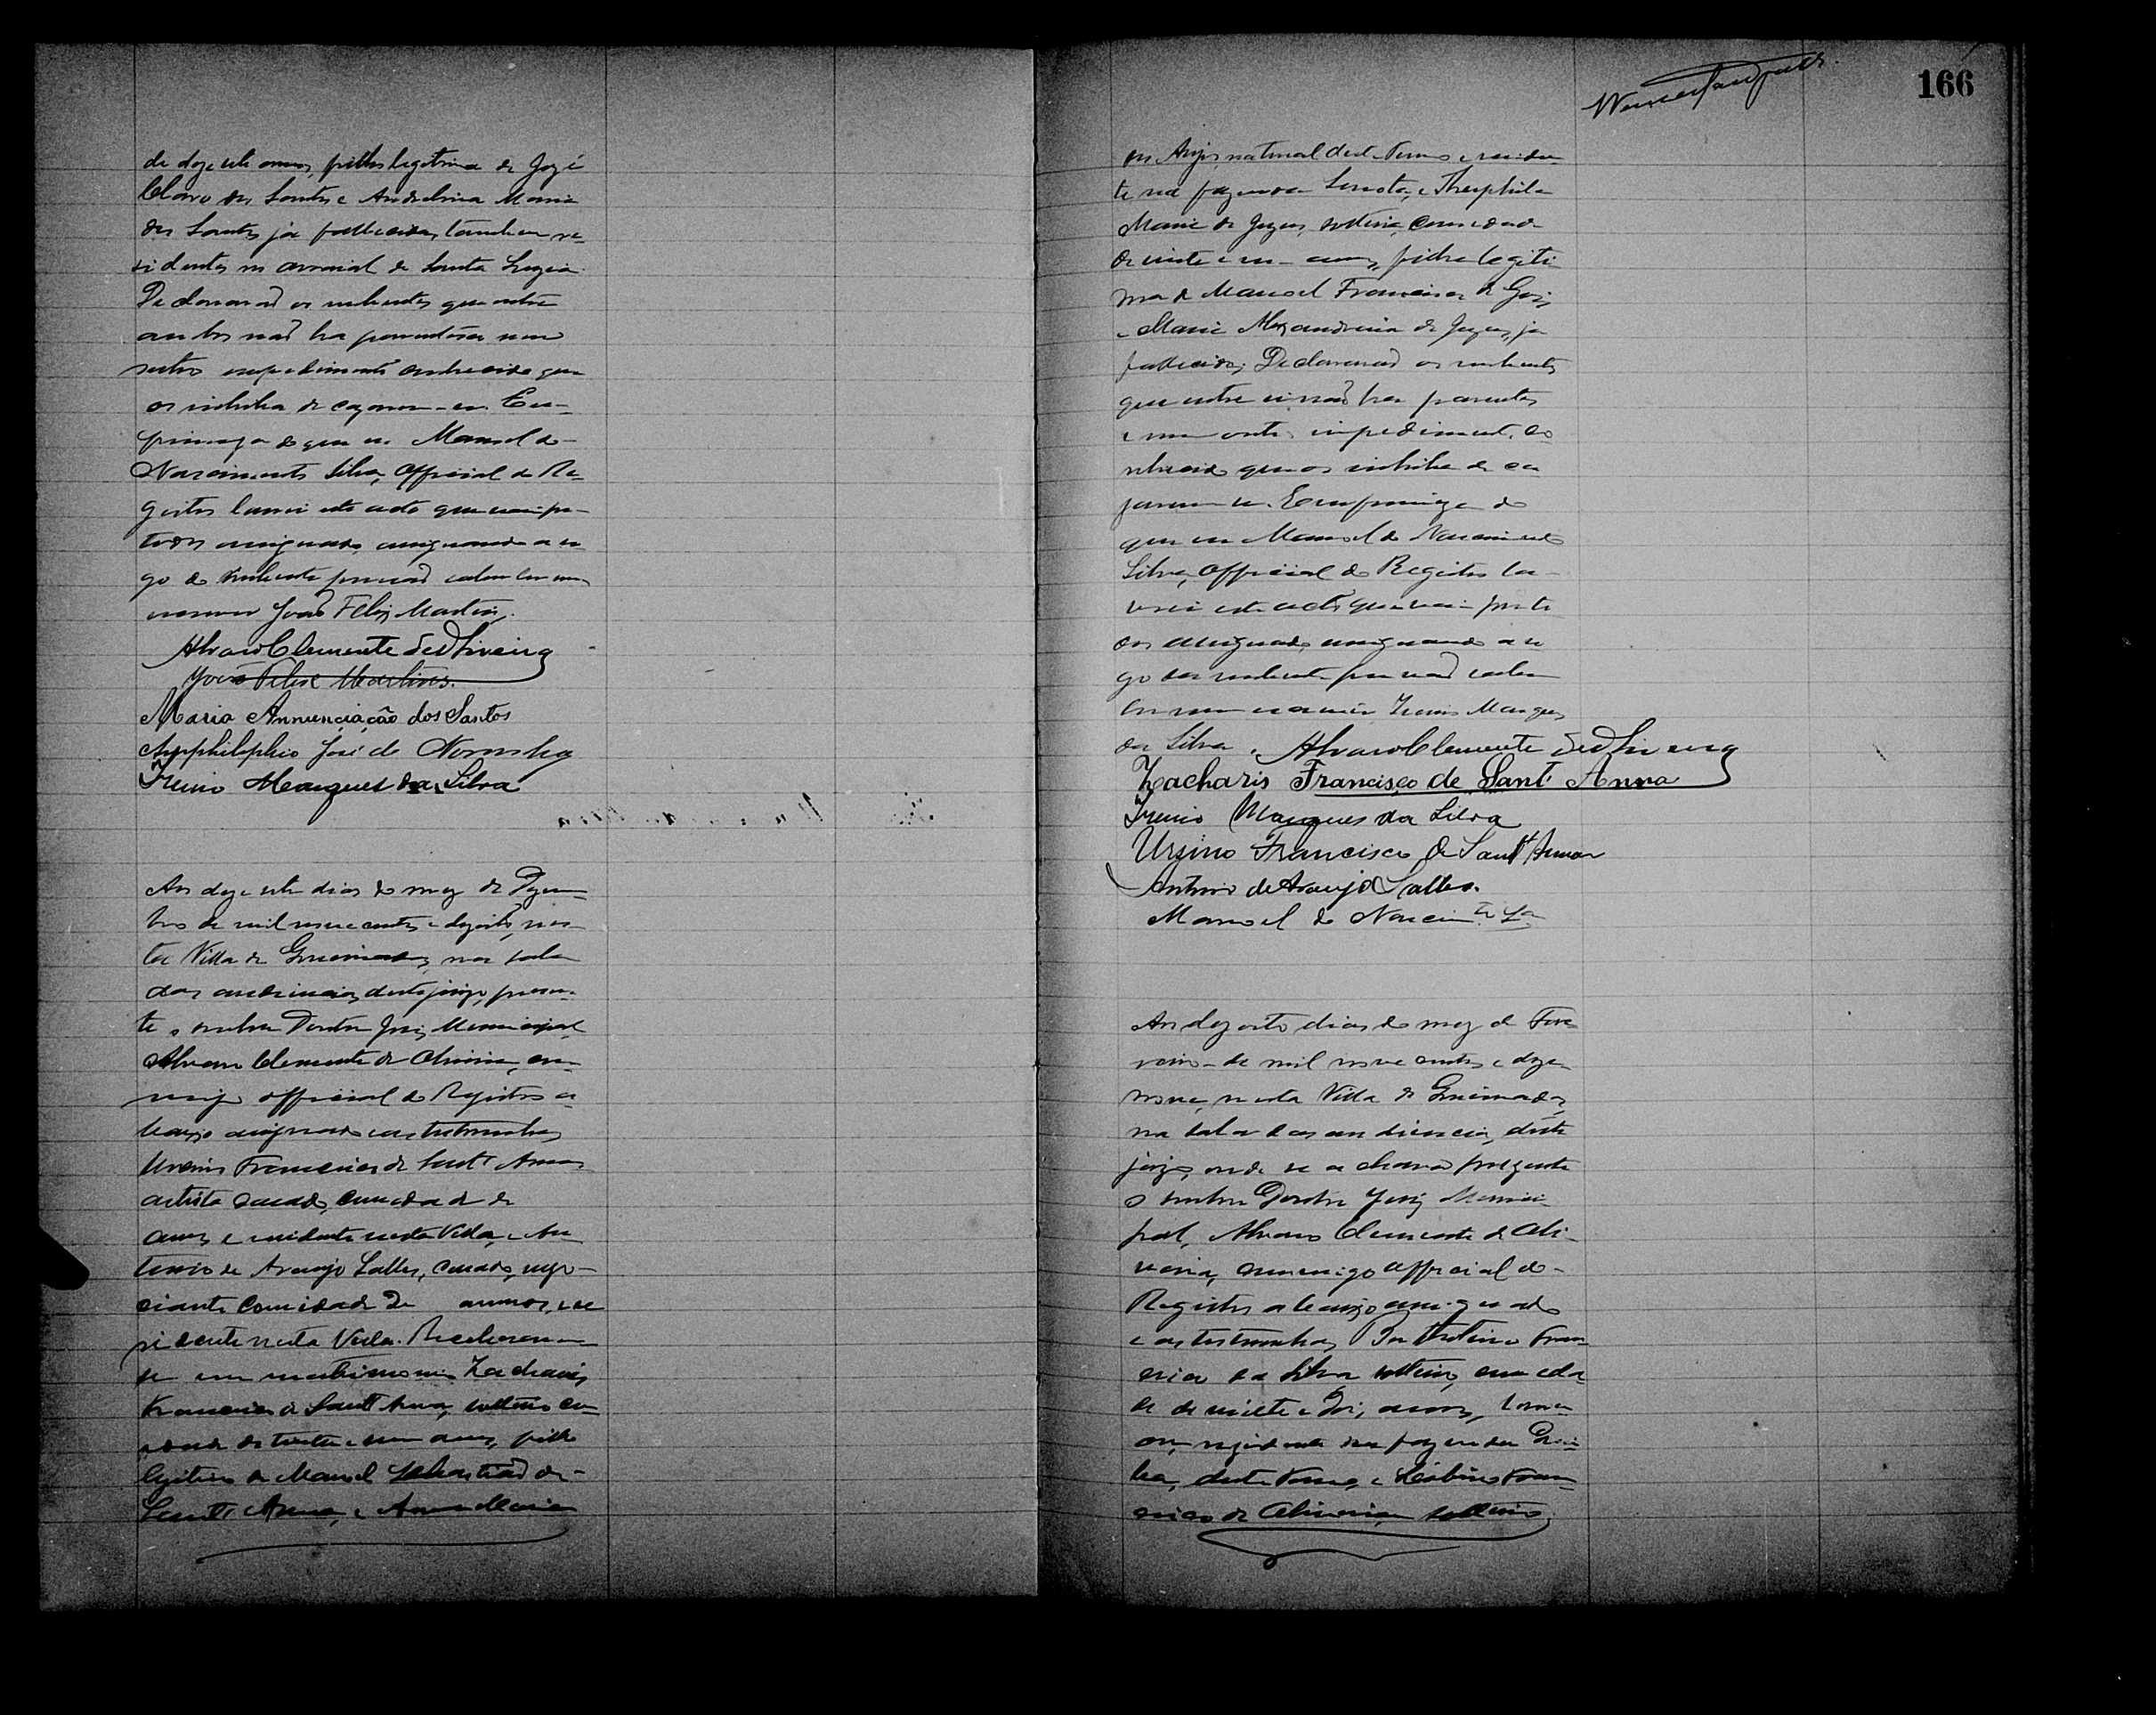 de dezesete annos, filha legitima de Jozé
Claro dos Santos e Andrelina Maria
dos Santos já fallecidos, tambem re-
sidentes no arraial de Santa Luzia.
Declararaõ os nubentes que entre
ambos naõ ha parentesco nem
outro impedimento conhecido que
os inhiba de cazarem-se. Em
firmeza do que eu Manoel do
Nascimento Silva, Official do Re-
gistro lavrei este acto que vai por
todos assignado, assignando a ro-
go do nubente por naõ saber ler nem
escrever Joaõ Felix Martins.
Alvaro Clemente de Oliveira
Joaõ Felix Martins.
Maria Annunciação dos Santos
José de Noronha
Irenio Marques da Silva
Aos dezesete dias do mez de Dezem-
bro de mil novecentos e dezoito, nes-
ta Villa de Queimadas, na sala
das audiencias deste juizo, presen-
te o senhor Doutor Juiz Municipal,
Alvaro Clemente de Oliveira, com-
migo official do Registro a-
baixo assignado e as testemunhas
Ursino Francisco de Sant' Anna
artista casado, com edade de
annos e residente nesta Villa, e An-
tonio de Araujo Salles, casado, nego-
ciante com idade de annos, e re-
sidente nesta Villa. Receberam-
se em matrimonio Zacharis
Francisco de Sant' Anna, solteiro com
edade de trinta e um annos, filho
legitimo de Manoel Sebastiaõ de
Sant' Anna, e Anna Maria
166
dos Anjos, natural deste Termo e residen-
te na fazenda Serrote, e Theophila
Maria de Jezus, solteira, com edade
de vinte e um annos, filha legiti-
ma de Manoel Francisco de Goes
e Maria Alexandrina de Jezus, já
fallecidos. Declararaõ os nubentes
que entre si naõ ha parentes
e nem outro impedimento co-
nhecido que os inhiba de ca-
zarem-se. Em firmeza do
que eu Manoel do Nascimento
Silva, Official do Registro la-
vrei este acto que vai por to-
dos assignado, assignando a ro-
go da nubente por naõ saber
ler nem escrever Irenio Marques
da Silva. Alvaro Clemente de Oliveira
Zacharis Francisco de Sant' Anna
Irenio Marques da Silva
Ursino Francisco de Sant' Anna
Antonio de Araujo Salles.
Manoel do Nascimto Sa
Aos dezoito dias do mez de Feve-
reiro de mil novecentos e deze-
nove, nesta Villa de Queimadas,
na sala das audiencias deste
juizo, onde se achava prezente
o senhor Doutor Juiz Munici-
pal, Alvaro Clemente de Oli-
veira, commigo official do
Registro abaixo assignado
e as testemunhas Fran-
cisco da Silva solteiro, com eda-
de de vinte e dois annos, lavra-
dor, rezidente na fazenda
deste Termo, e Fran-
cisco de Oliveira, solteiro